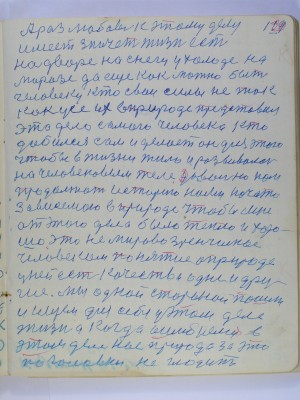 А раз любовь к этому делу
имеет значет жизн есть
на дворе на снегу и холоде на
морозе да еще как можно быть
человеку кто свои силы не так
как усе их в природе представил
это дело самого человека кто
добился сам и делает он для этого
чтобы в жизни жило и развивалос
на человековом теле
продолжат историю нами начато
зависемаю в природе чтобы мне
от этого дела было тепло и хоро-
шо это не мировозренческое
человеком понятие а природа
у ней ест качества одне и дру-
гие. Мы одной стороной пошли
и ищем для себя у этом деле
жизн а когда в
этом деле нас природа за это
по головки не гладить